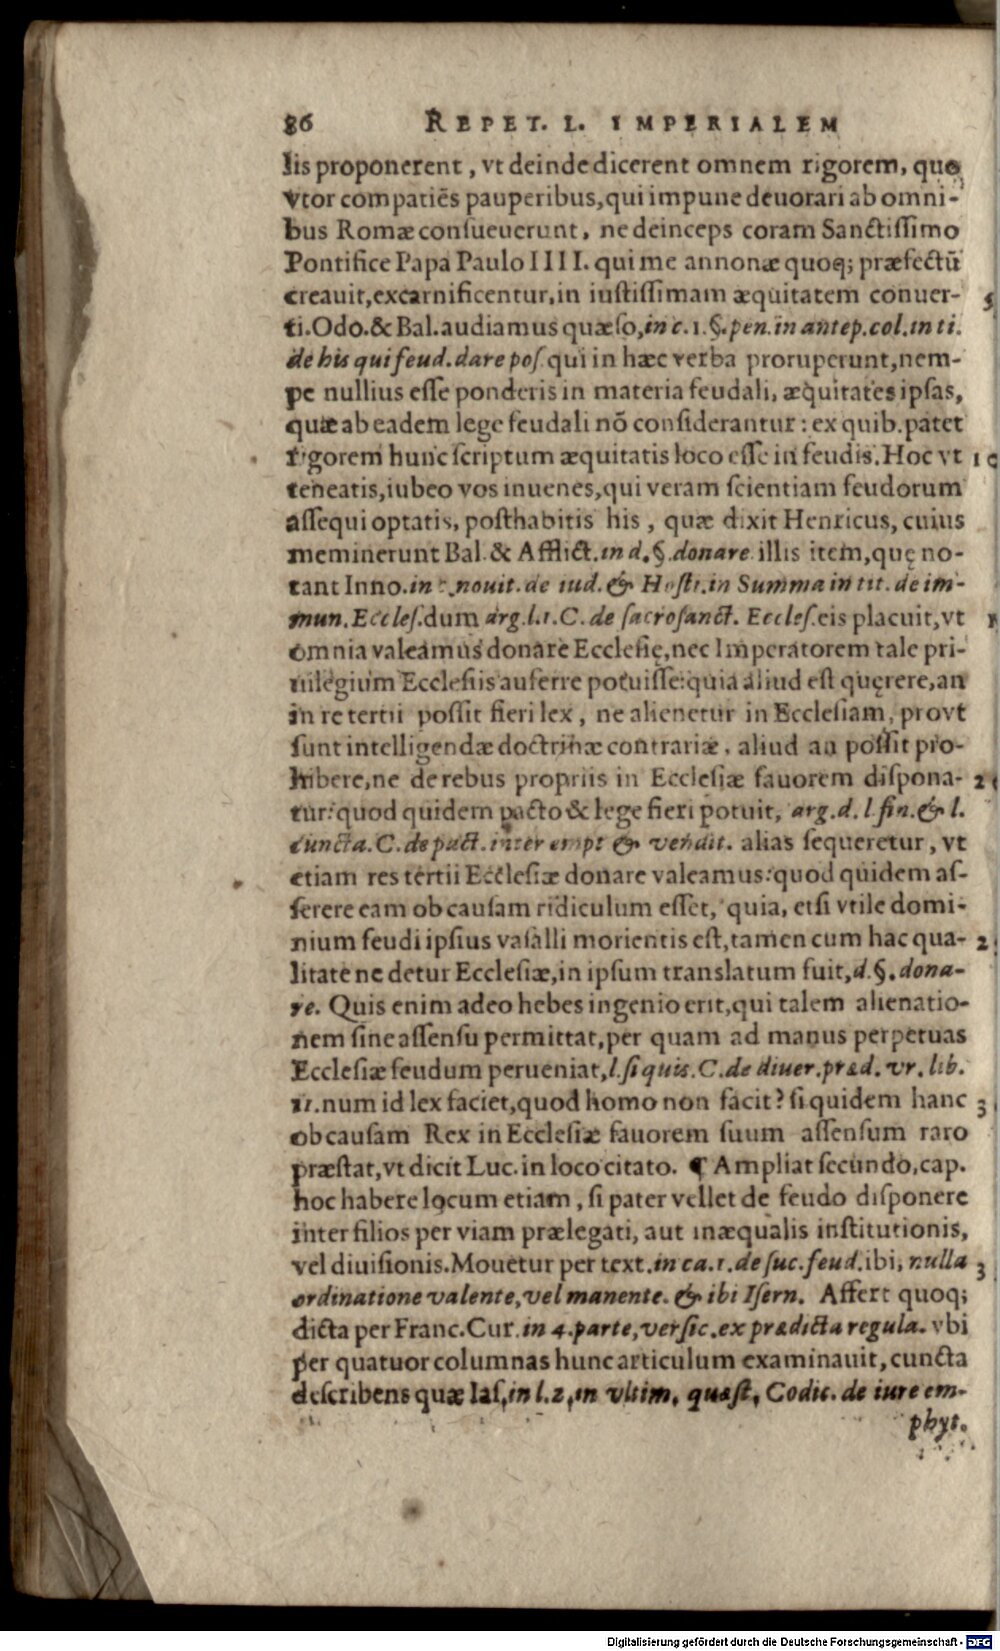 86 REPET. L. IMPERIALEM
lis proponerent, vt deinde dicerent omnem rigorem, quo
vtor compatiẽs pauperibus, qui impune deuorari ab omni-
bus Romæ consueuerunt, ne deinceps coram Sanctissimo
Pontifice Papa Paulo IIII. qui me annonæ quoq; præfectũ
creauit, excarnificentur, in iustissimam æquitatem conuer- 5
ti. Odo. & Bal. audiamus quæso, in c. 1. §. pen. in antep. col. in ti.
de his qui feud. dare pos. qui in hæc verba proruperunt, nem-
pe nullius esse ponderis in materia feudali, æquitates ipsas,
quæ ab eadem lege feudali nõ considerantur: ex quib. patet
rigorem hunc scriptum æquitatis loco esse in feudis. Hoc vt 10
teneatis, iubeo vos iuuenes, qui veram scientiam feudorum
assequi optatis, posthabitis his, quæ dixit Henricus, cuius
meminerunt Bal. & Afflict. in d. §. donare. illis item, quę no-
tant Inno. in c. nouit. de iud. & Hosti. in Summa in tit. de im-
mun. Eccles. dum arg. l. 1. C. de sacrosanct. Eccles. eis placuit, vt
omnia valeamus donare Ecclesię, nec Imperatorem tale pri-
uilegium Ecclesiis auferre potuisse: quia aliud est quęrere, an
in re tertii possit fieri lex, ne alienetur in Ecclesiam, provt
sunt intelligendæ doctrinæ contrariæ, aliud an possit pro-
hibere, ne de rebus propriis in Ecclesiæ fauorem dispona- 2
tur: quod quidem pacto & lege fieri potuit, arg. d. l. fin. & l.
cuncta. C. de pact. inter empt & vendit. alias sequeretur, vt
etiam res tertii Ecclesiæ donare valeamus: quod quidem as-
serere eam ob causam ridiculum esset, quia, etsi vtile domi-
nium feudi ipsius vasalli morientis est, tamen cum hac qua- 2
litate ne detur Ecclesiæ, in ipsum translatum fuit, d. §. dona-
re. Quis enim adeo hebes ingenio erit, qui talem alienatio-
nem sine assensu permittat, per quam ad manus perpetuas
Ecclesiæ feudum perueniat, l. si quis. C. de diuer. præd. vr. lib.
11. num id lex faciet, quod homo non facit? siquidem hanc 3
ob causam Rex in Ecclesiæ fauorem suum assensum raro
præstat, vt dicit Luc. in loco citato. ¶ Ampliat secundo, cap.
hoc habere locum etiam, si pater vellet de feudo disponere
inter filios per viam prælegati, aut inæqualis institutionis,
vel diuisionis. Mouetur per text. in ca. 1. de suc. feud. ibi, nulla 3
ordinatione valente, vel manente. & ibi Isern. Affert quoq;
dicta per Franc. Cur. in 4. parte, versic. ex prædicta regula. vbi
per quatuor columnas hunc articulum examinauit, cuncta
describens quæ Ias. in l. 2. in vltim. quæst. Codic. de iure em-
phyt.
Digitalisierung gefördert durch die Deutsche Forschungsgemeinschaft - DFG